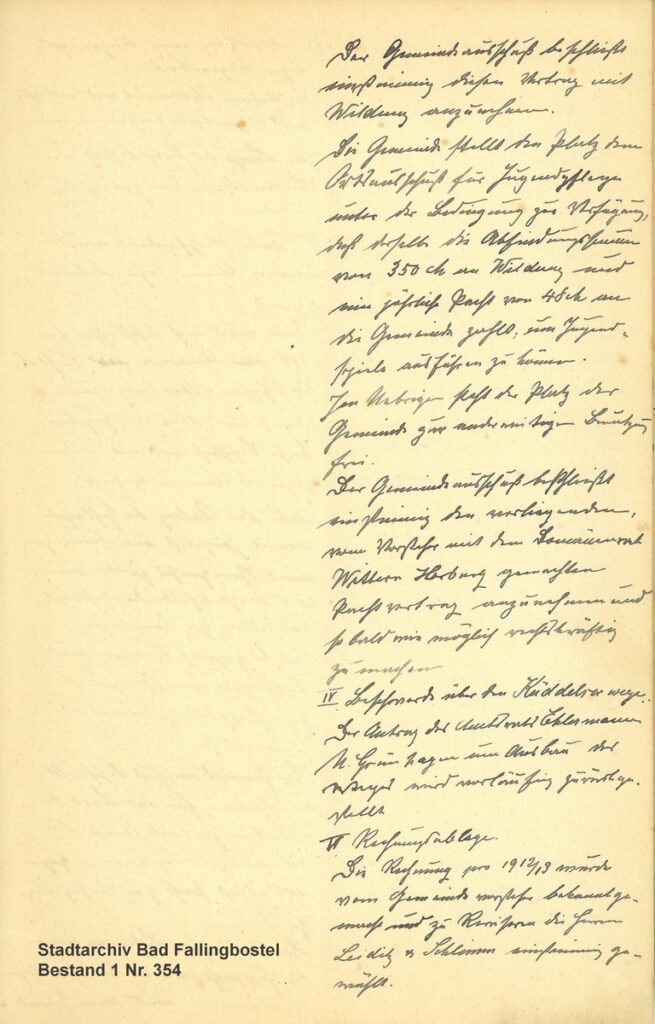 Der Gemeindeausschuß beschließt
einstimmig diesen Vertrag mit
Wildung anzunehmen.
Die Gemeinde stellt den Platz dem
Ortsausschuß für Jugendpflege
unter der Bedingung zur Verfügung,
daß derselbe die Abfindungssumme
von 350 M an Wildung und
eine jährliche Pacht von 48 M an
die Gemeinde zahlt, um Jugend-
spiele ausführen zu können.
Im Uebrigen steht der Platz der
Gemeinde zur anderweitigen Benutzung
frei.
Der Gemeindeausschuß beschließt
einstimmig den vorliegenden,
vom Vorsteher mit dem Domänenrat
Wittern Harburg gemachten
Pachtvertrag anzunehmen und
so bald wie möglich rechtskräftig
zu machen
IV. Beschwerde über den Küddelser wege.
Der Antrag des Amtsrats Ehlermann
u. Grünhagen um Ausbau des
Weges wird vorläufig zurückge-
stellt
VI Rechnungsablage.
Die Rechnung pro 1912/13 wurde
vom Gemeindevorsteher bekanntge-
macht und zu Revisoren die Herren
& Schlimm einstimmig ge-
wählt.
Stadtarchiv Bad Fallingbostel
Bestand 1 Nr. 354